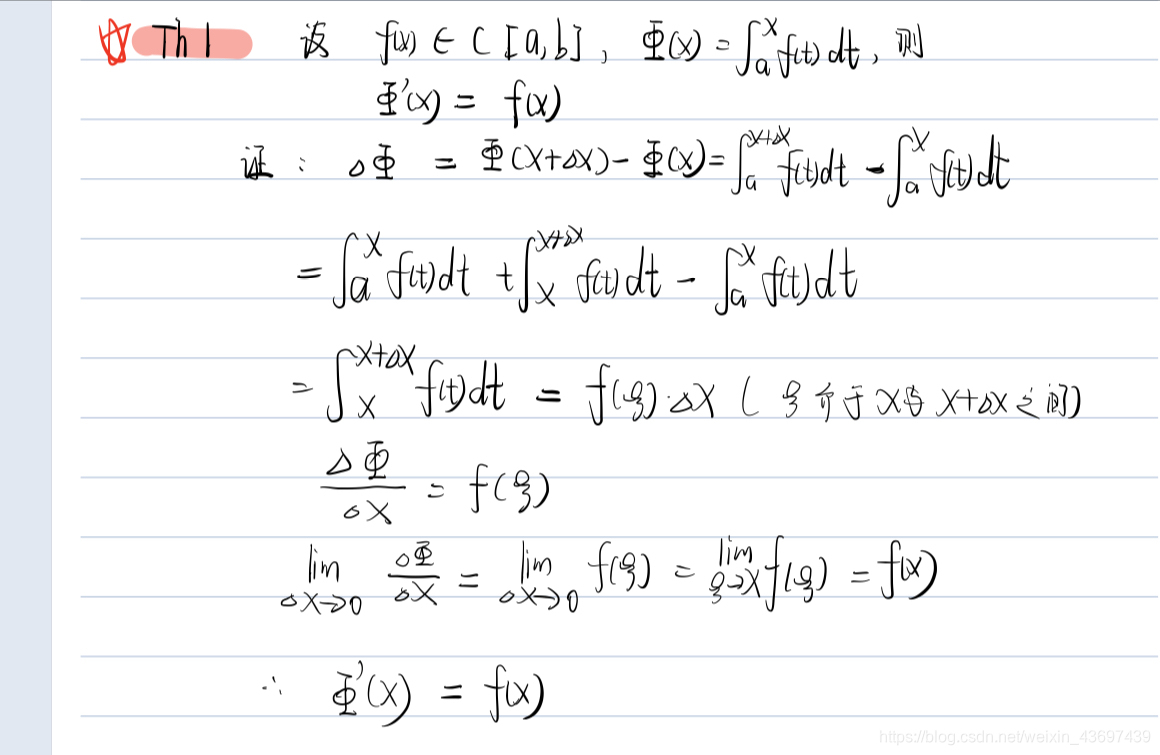 Th 1 设 f(x) ∈ C [a,b], Φ(x) = ∫ₐˣ f(t) dt, 则
Φ'(x) = f(x)
证: △Φ = Φ(x+△x) - Φ(x) = ∫ₐ^(x+△x) f(t)dt - ∫ₐˣ f(t)dt
= ∫ₐˣ f(t)dt + ∫ₓ^(x+△x) f(t)dt - ∫ₐˣ f(t)dt
= ∫ₓ^(x+△x) f(t)dt = f(ξ)·△x ( ξ介于x与x+△x之间)
△Φ/△x = f(ξ)
lim_(△x→0) △Φ/△x = lim_(△x→0) f(ξ) = lim_(ξ→x) f(ξ) = f(x)
∴ Φ'(x) = f(x)
https://blog.csdn.net/weixin_43697439